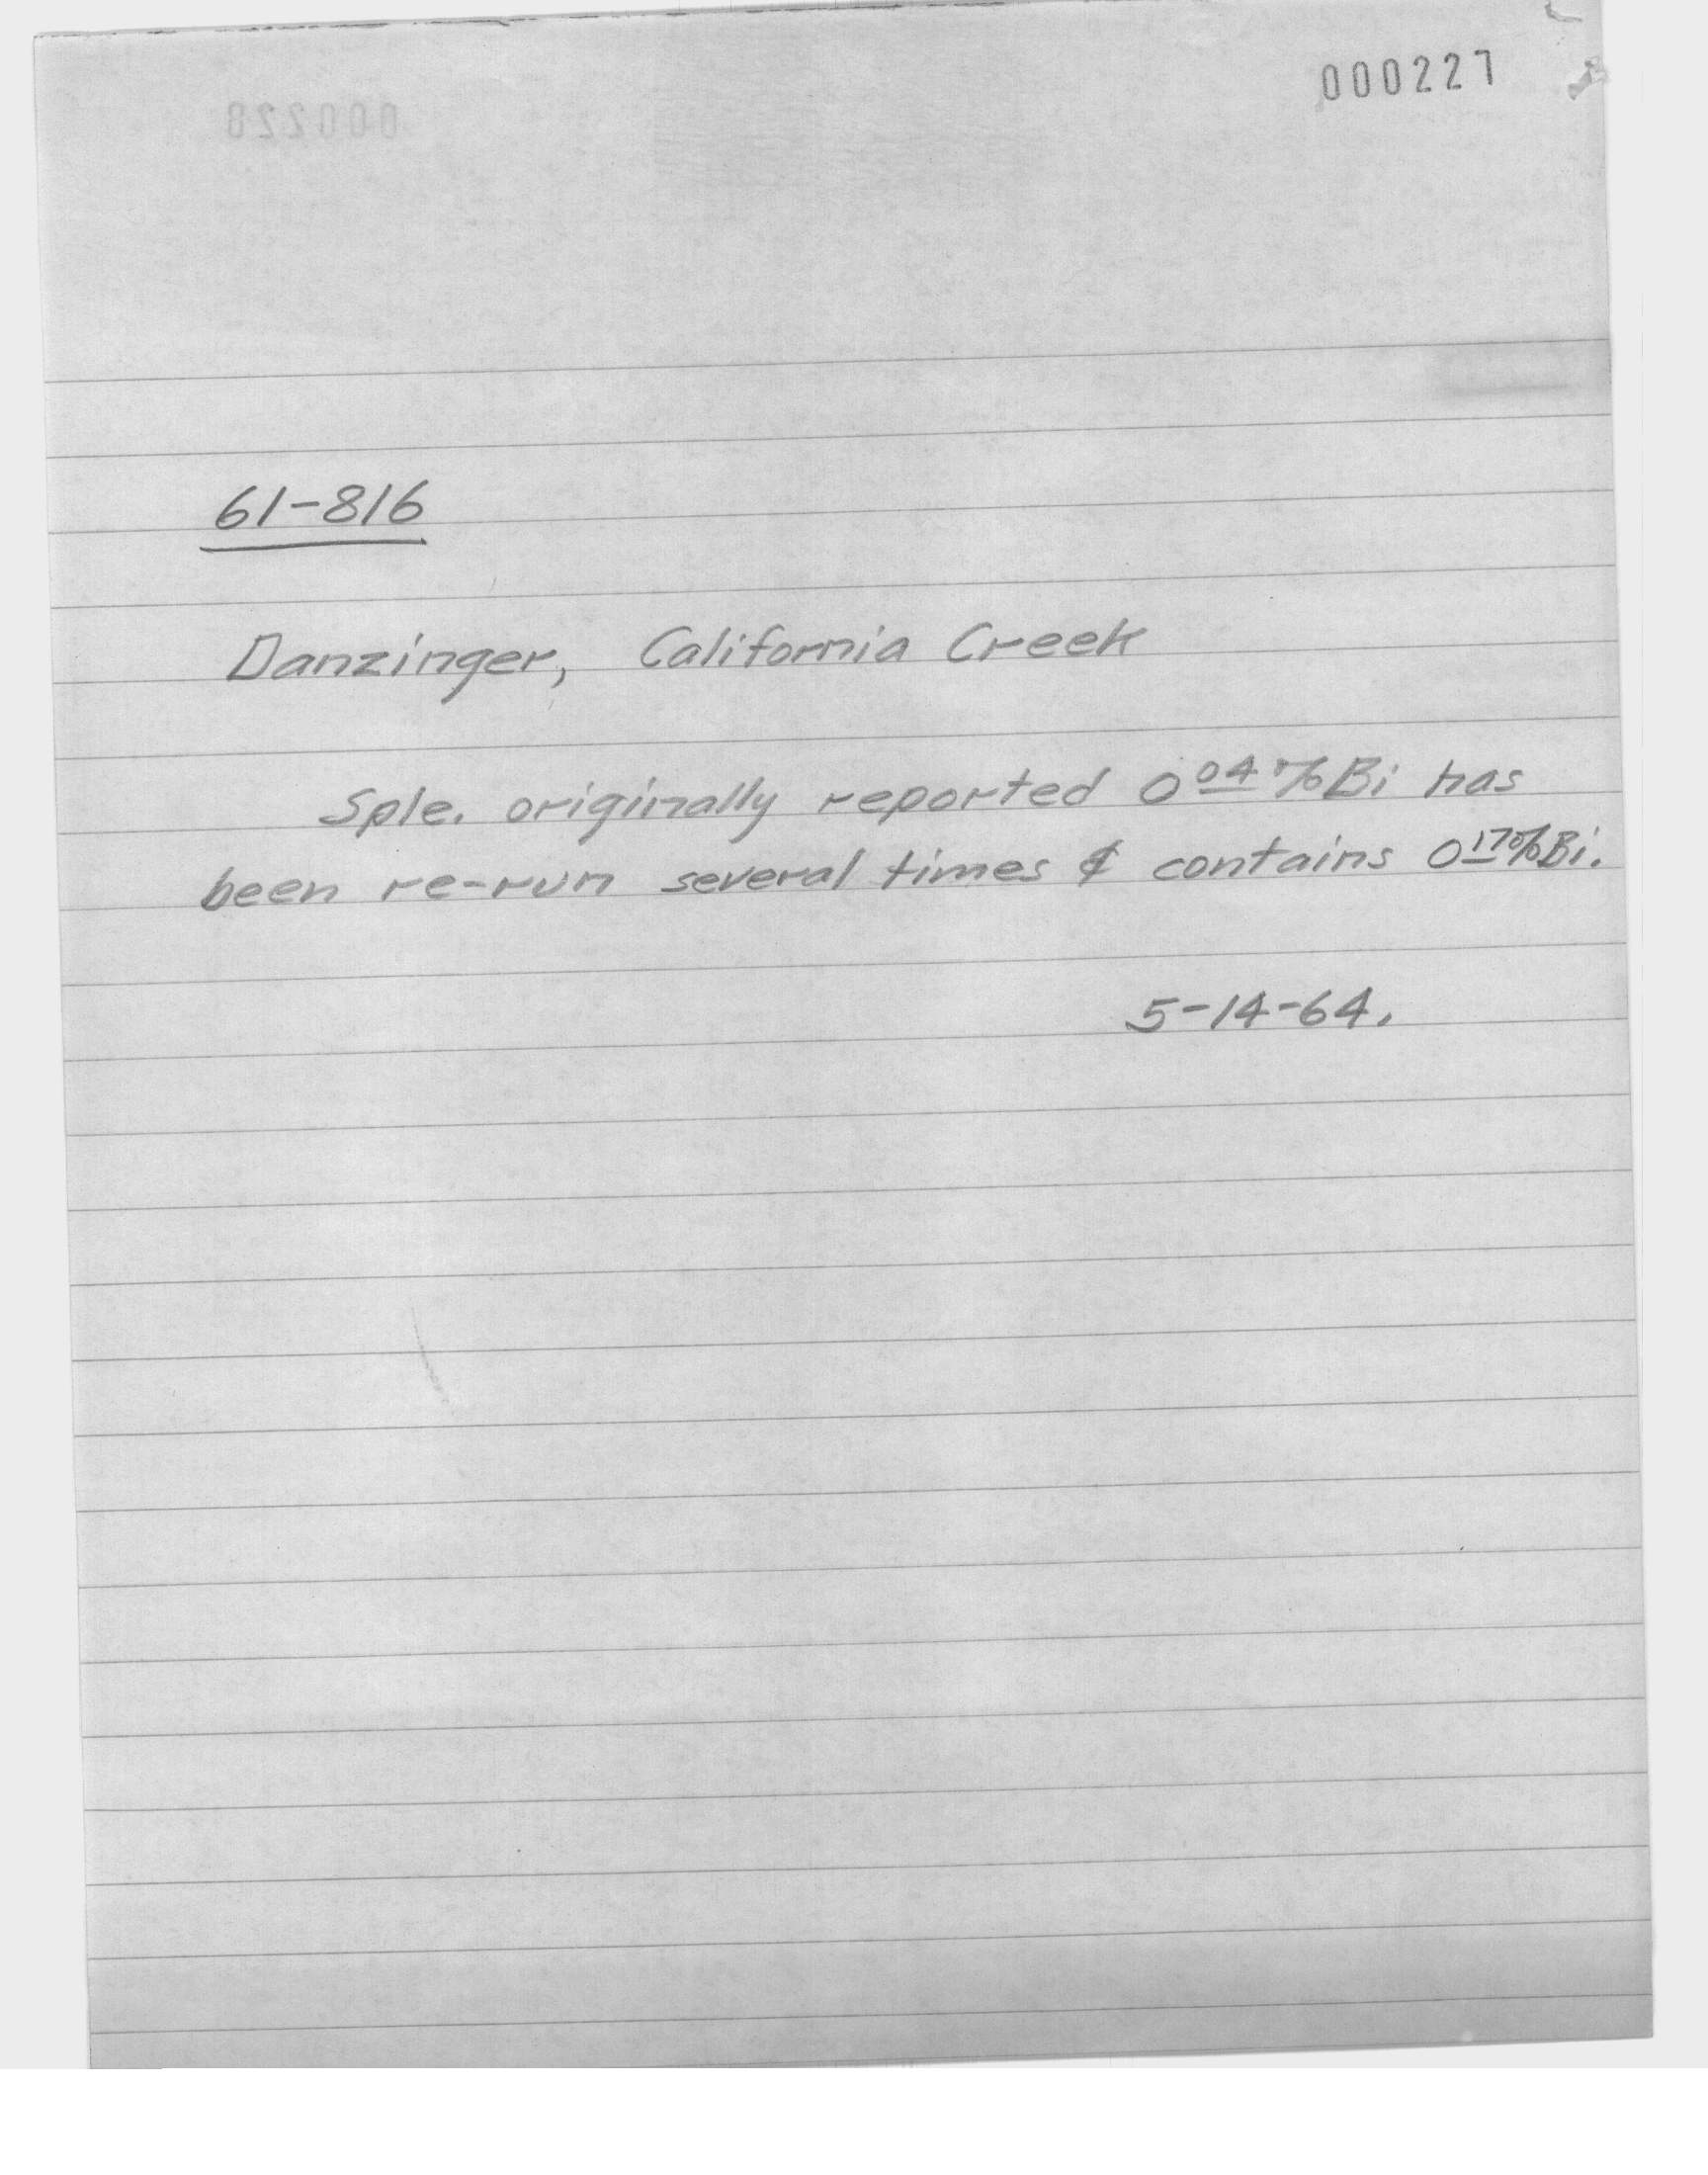 000227
000228
61-816
Danzinger, California Creek
Sple. originally reported 0 04 % Bi has
been re-run several times & contains 0 17% Bi.
5-14-64.